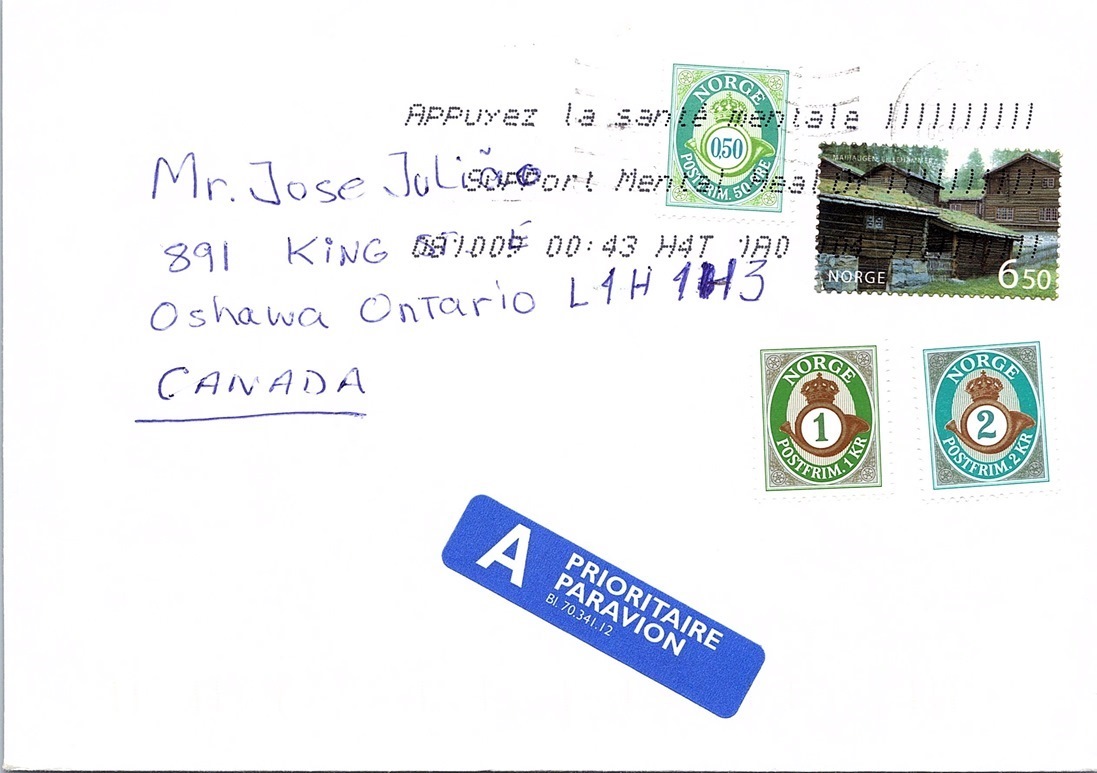 APPUYEZ la santé mentale !!!!!!!!!!
Support Mental Health
081009 00:43 H4T 1A0
Mr. Jose Juliño
891 KING ST E
Oshawa Ontario L1H 1H3
CANADA
NORGE
0,50
POSTFRIM. 50 ØRE
MAIHAUGEN, LILLEHAMMER
NORGE
6 50
NORGE
1
POSTFRIM. 1 KR
NORGE
2
POSTFRIM. 2 KR
A PRIORITAIRE
PARAVION
Bl. 70.341.12